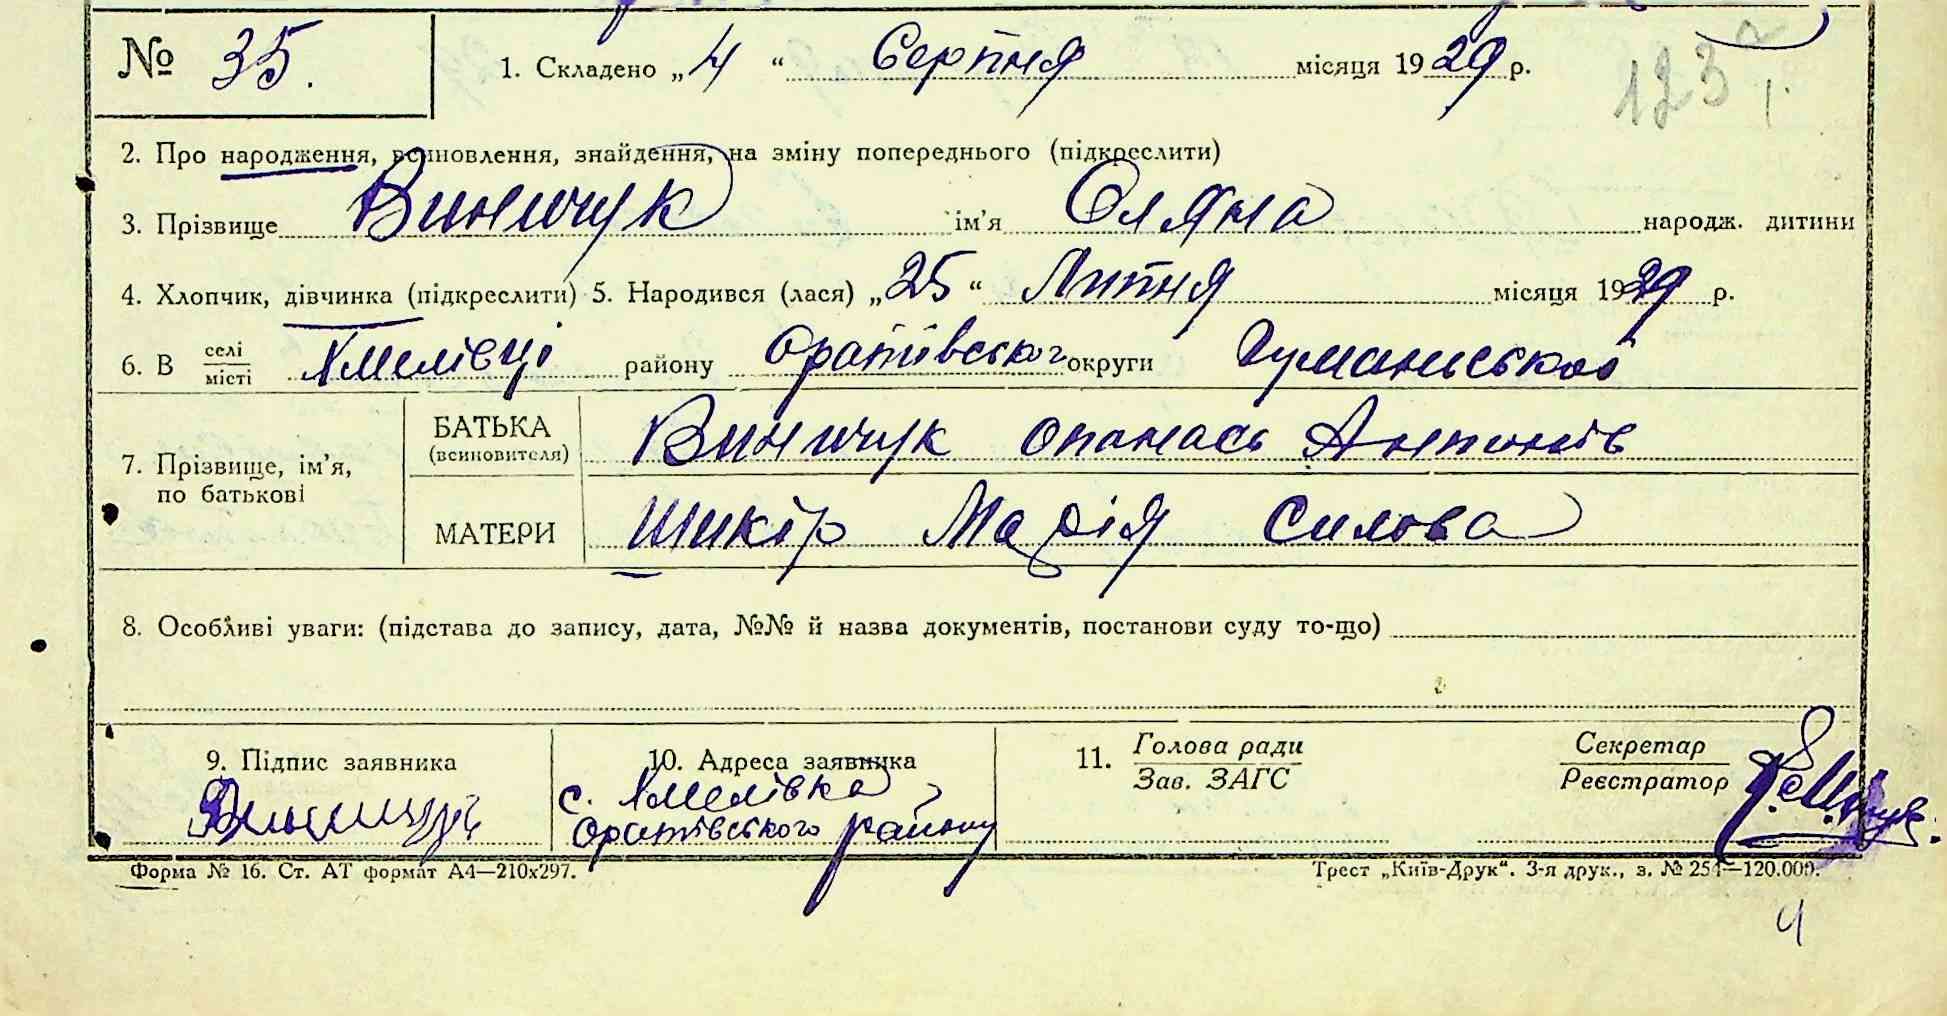 № 35. 1. Складено „4“ Серпня місяця 1929 р.
123
2. Про народження, всиновлення, знайдення, на зміну попереднього (підкреслити)
3. Прізвище Виничук ім’я Оляна народж. дитини
4. Хлопчик, дівчинка (підкреслити) 5. Народився (лася) „25“ Липня місяця 1929 р.
6. В селі/місті Хмелівці району Оратівськог округи Гуманської
7. Прізвище, ім’я, по батькові
БАТЬКА (всиновителя) Виничук Опанась Антонів
МАТЕРИ Шикір Марія Силова
8. Особливі уваги: (підстава до запису, дата, №№ й назва документів, постанови суду то-що)
9. Підпис заявника 10. Адреса заявника 11. Голова ради Секретар
Зав. ЗАГС Реєстратор
с. Хмелівка
Оратівського району
Форма № 16. Ст. АТ формат А4—210х297. Трест „Київ-Друк“. 3-я друк., з. № 254—120.000.
4